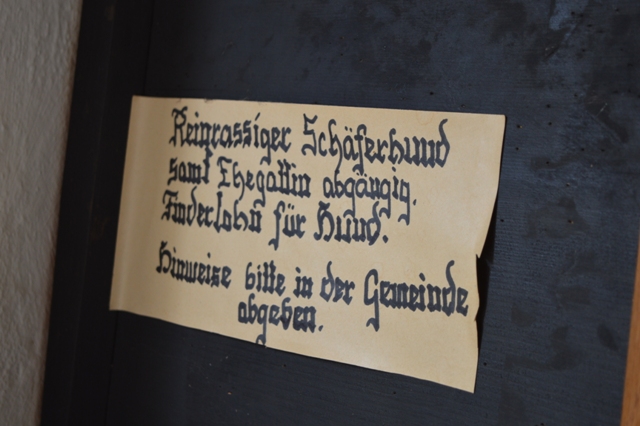 Reinrassiger Schäferhund
samt Ehegattin abgängig.
Finderlohn für Hund.
Hinweise bitte in der Gemeinde
abgeben.